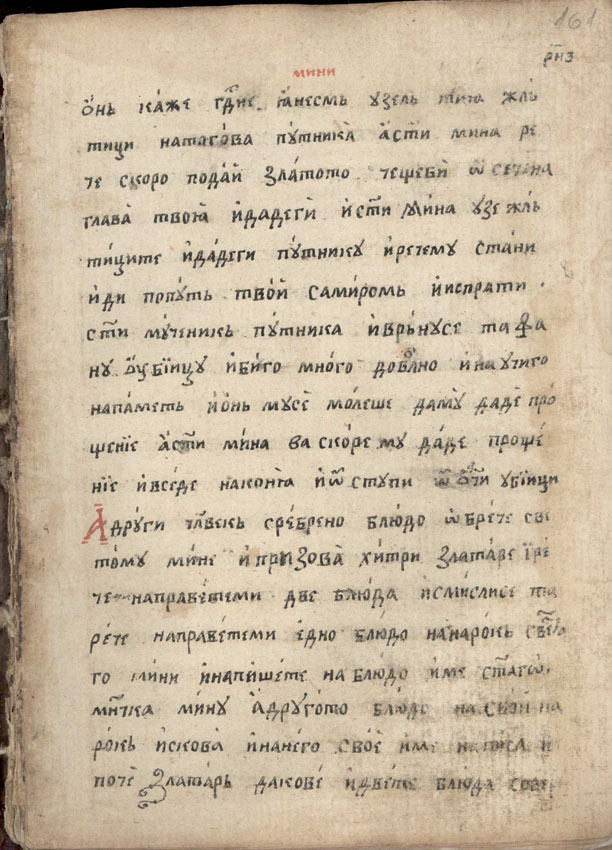 161
рн҃з
мини
ѻ҆́нь ка́же гдⷭ҇не ꙗ҆́несмь узель тиꙗ жль
тици натого́ва пꙋ́тника̀ а҆ст҃и мина ре
че скоро пода́й златото че щеби ѿсечена
глава̀ твоꙗ̀ и҆дадеги̏ и҆ст҃и мина узе жль
ти́ците и҆да́деги пꙋ́тникꙋ и҆рече мꙋ стани
и҆ди попꙋть тво́й самиромь и҆испрати
ст҃и мꙋ́ченикь пꙋ́тника и҆врь́нꙋсе та
нꙋ ꙋ҆бі́ицꙋ и҆биго мно́го дово́лно и҆наꙋчиго
напа́меть и҆ѻ҆нь мꙋсѐ мо́леше дамꙋ̀ дадѐ про́
щенїе а҆ст҃и ми́на ва скоре мꙋ да́де проще́
нїе и҆вседе наконꙗ̀ и҆ѿстꙋпи ѿ ѻ҆́чи ꙋбїици
А҆дрꙋги чл҃векь сре́брено блю́до ѡ҆бре́че све
то́мꙋ ми́не и҆призова̀ хи́три злата́ре і҆ре́
че направе́теми две блю́да и҆сми́слисе та
ре́че направе́теми е҆дно блю́до на наро́кь свет҃а
го мини и҆напише́те на блю́до и҆ме ст҃агѡ
мч҃нка ми́нꙋ а҆дрꙋго́то блю́до на сво́й на
ро́кь и҆скова̀ и҆нанего сво́е и҆ме написа и
поче̏ злата́рь дакове́ и҆две́те блю́да сове́р